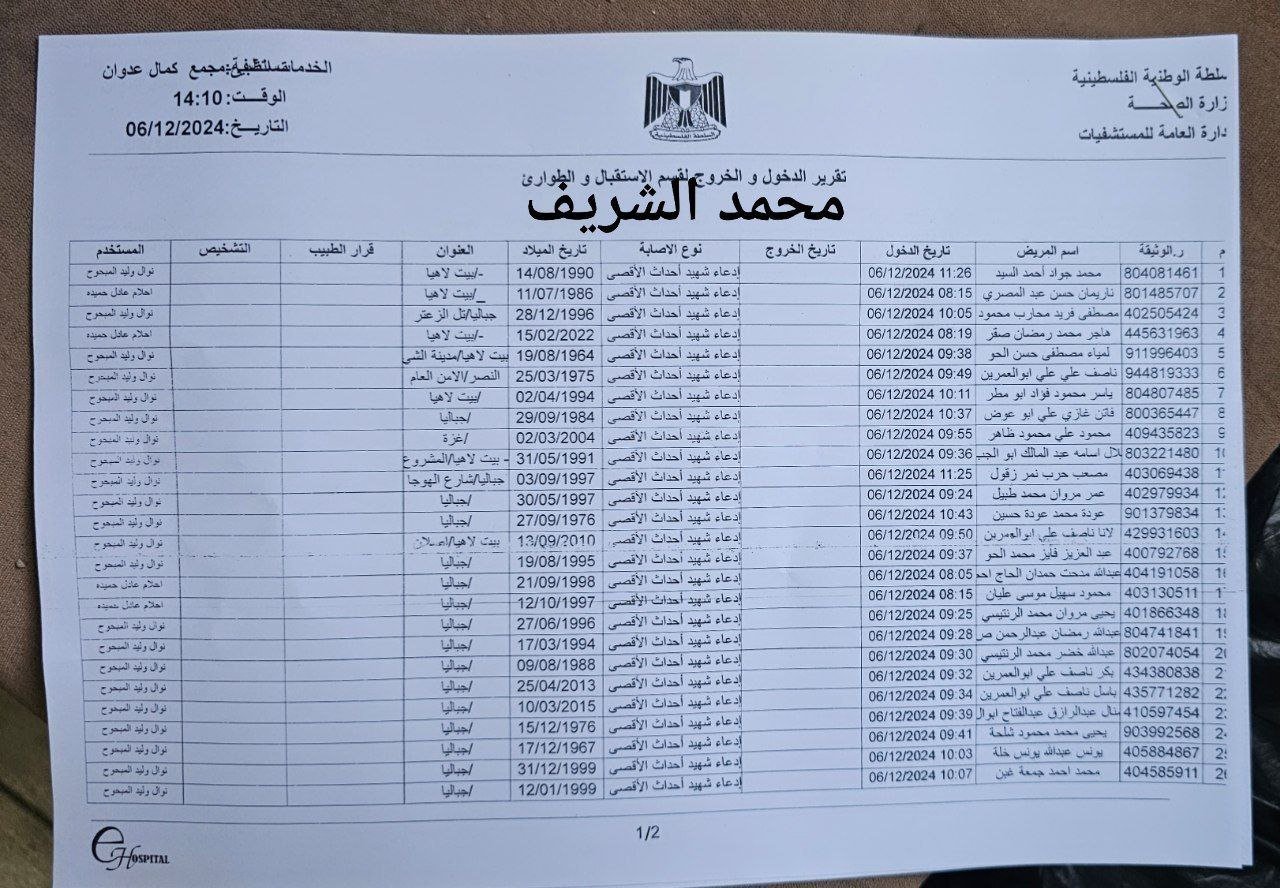 سلطة الوطنية الفلسطينية
زارة الصحـــة
دارة العامة للمستشفيات
السلطة الفلسطينية
مجمع كمال عدوان
الوقـــت: 14:10
التاريـــخ: 06/12/2024
تقرير الدخول و الخروج لقسم الاستقبال و الطوارئ
محمد الشريف
م ر.الوثيقة اسم المريض تاريخ الدخول تاريخ الخروج نوع الاصابة تاريخ الميلاد العنوان قرار الطبيب التشخيص المستخدم
1 804081461 محمد جواد أحمد السيد 06/12/2024 11:26 إدعاء شهيد أحداث الأقصى 14/08/1990 -/بيت لاهيا نوال وليد المبحوح
2 801485707 ناريمان حسن عبد المصري 06/12/2024 08:15 إدعاء شهيد أحداث الأقصى 11/07/1986 _/بيت لاهيا احلام عادل حميده
3 402505424 مصطفى فريد محارب محمود 06/12/2024 10:05 إدعاء شهيد أحداث الأقصى 28/12/1996 جباليا/تل الزعتر نوال وليد المبحوح
4 445631963 هاجر محمد رمضان صقر 06/12/2024 08:19 إدعاء شهيد أحداث الأقصى 15/02/2022 -/بيت لاهيا احلام عادل حميده
5 911996403 لمياء مصطفى حسن الحو 06/12/2024 09:38 إدعاء شهيد أحداث الأقصى 19/08/1964 بيت لاهيا/مدينة الشي نوال وليد المبحوح
6 944819333 ناصف علي علي ابوالعمرين 06/12/2024 09:49 إدعاء شهيد أحداث الأقصى 25/03/1975 النصر/الامن العام نوال وليد المبحوح
7 804807485 ياسر محمود فؤاد ابو مطر 06/12/2024 10:11 إدعاء شهيد أحداث الأقصى 02/04/1994 /بيت لاهيا نوال وليد المبحوح
8 800365447 فاتن غازي علي ابو عوض 06/12/2024 10:37 إدعاء شهيد أحداث الأقصى 29/09/1984 /جباليا نوال وليد المبحوح
9 409435823 محمود علي محمود ظاهر 06/12/2024 09:55 إدعاء شهيد أحداث الأقصى 02/03/2004 /غزة نوال وليد المبحوح
10 803221480 لال اسامه عبد المالك ابو الجب 06/12/2024 09:36 إدعاء شهيد أحداث الأقصى 31/05/1991 - بيت لاهيا/المشروع نوال وليد المبحوح
1 403069438 مصعب حرب نمر زقول 06/12/2024 11:25 إدعاء شهيد أحداث الأقصى 03/09/1997 جباليا/شارع الهوجا نوال وليد المبحوح
1 402979934 عمر مروان محمد طبيل 06/12/2024 09:24 إدعاء شهيد أحداث الأقصى 30/05/1997 /جباليا نوال وليد المبحوح
1 901379834 عودة محمد عودة حسين 06/12/2024 10:43 إدعاء شهيد أحداث الأقصى 27/09/1976 /جباليا نوال وليد المبحوح
1 429931603 لانا ناصف علي ابوالعمرين 06/12/2024 09:50 إدعاء شهيد أحداث الأقصى 13/09/2010 بيت لاهيا/اصلان نوال وليد المبحوح
1 400792768 عبد العزيز فايز محمد الحو 06/12/2024 09:37 إدعاء شهيد أحداث الأقصى 19/08/1995 /جباليا نوال وليد المبحوح
1 404191058 عبدالله مدحت حمدان الحاج احم 06/12/2024 08:05 إدعاء شهيد أحداث الأقصى 21/09/1998 /جباليا احلام عادل حميده
1 403130511 محمود سهيل موسى عليان 06/12/2024 08:15 إدعاء شهيد أحداث الأقصى 12/10/1997 /جباليا احلام عادل حميده
1 401866348 يحيى مروان محمد الرنتيسي 06/12/2024 09:25 إدعاء شهيد أحداث الأقصى 27/06/1996 /جباليا نوال وليد المبحوح
1 804741841 عبدالله رمضان عبدالرحمن ص 06/12/2024 09:28 إدعاء شهيد أحداث الأقصى 17/03/1994 /جباليا نوال وليد المبحوح
2 802074054 عبدالله خضر محمد الرنتيسي 06/12/2024 09:30 إدعاء شهيد أحداث الأقصى 09/08/1988 /جباليا نوال وليد المبحوح
2 434380838 بكر ناصف علي ابوالعمرين 06/12/2024 09:32 إدعاء شهيد أحداث الأقصى 25/04/2013 /جباليا نوال وليد المبحوح
2 435771282 باسل ناصف علي ابوالعمرين 06/12/2024 09:34 إدعاء شهيد أحداث الأقصى 10/03/2015 /جباليا نوال وليد المبحوح
2 410597454 منال عبدالرازق عبدالفتاح ابوال 06/12/2024 09:39 إدعاء شهيد أحداث الأقصى 15/12/1976 /جباليا نوال وليد المبحوح
2 903992568 يحيى محمد محمود شلحة 06/12/2024 09:41 إدعاء شهيد أحداث الأقصى 17/12/1967 /جباليا نوال وليد المبحوح
2 405884867 يونس عبدالله يونس خلة 06/12/2024 10:03 إدعاء شهيد أحداث الأقصى 31/12/1999 /جباليا نوال وليد المبحوح
26 404585911 محمد احمد جمعة غبن 06/12/2024 10:07 إدعاء شهيد أحداث الأقصى 12/01/1999 /جباليا نوال وليد المبحوح
1/2
eHOSPITAL